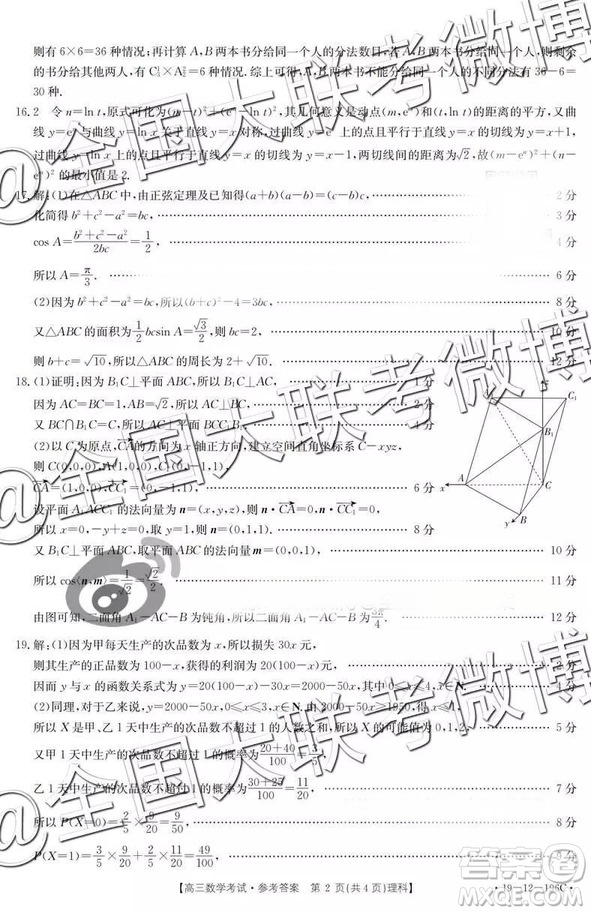 则有 6×6=36 种情况;再计算 A,B 两本书分给同一个人的分法数目,若 A,B 两本书分给同一个人,则剩余
的书分给其他两人,有 C₃¹×A₂²=6 种情况.综上可得,A,B 两本书不能分给同一个人的不同分法有 36-6=
30 种.
16.2 令 n=ln t,原式可化为(m-t)²+(eᵐ-ln t)²,其几何意义是动点(m,eᵐ)和(t,ln t)的距离的平方,又曲
线 y=eˣ 与曲线 y=ln x 关于直线 y=x 对称,过曲线 y=eˣ 上的点且平行于直线 y=x 的切线为 y=x+1,
过曲线 y=ln x 上的点且平行于直线 y=x 的切线为 y=x-1,两切线间的距离为√2,故(m-eⁿ)²+(n-
eᵐ)² 的最小值是 2.
17.解:(1)在△ABC 中,由正弦定理及已知得(a+b)(a-b)=c(c-b), 2 分
化简得 b²+c²-a²=bc, 3 分
cos A=(b²+c²-a²)/2bc=1/2, 4 分
所以 A=π/3. 6 分
(2)因为 b²+c²-a²=bc,所以(b+c)²-4=3bc, 8 分
又△ABC 的面积为 1/2 bcsin A=√3/2,所以 bc=2, 10 分
则 b+c=√10,所以△ABC 的周长为 2+√10. 12 分
18.(1)证明:因为 B₁C⊥平面 ABC,所以 B₁C⊥AC, 1 分
因为 AC=BC=1,AB=√2,所以 AC⊥BC,
又 BC∩B₁C=C,所以 AC⊥平面
(2)以 C 为原点,CA的方向为 x 轴正方向,建立空间直角坐标系 C-xyz,
则 C(0,0,0),A(1,0,0),
CA=(1,0,0),CC₁=(0,-1,1), 6 分
设平面 A₁ACC₁ 的法向量为 n=(x,y,z),则 n·CA=0,n·CC₁=0,
即 x=0,-y+z=0, 8 分
又 B₁C⊥平面 ABC,取平面 ABC 的法向量 m=(0,0,1), 10 分
所以 cos⟨n,m⟩=1/√2=√2/2, 11 分
由图可知,二面角 A₁-AC-B 为钝角,所以二面角 A₁-AC-B 为 3π/4. 12 分
19.解:(1)因为甲每天生产的次品数为 x,所以损失 30x 元,
则其生产的正品数为 100-x,获得的利润为 20(100-x)元, 2 分
因而 y 与 x 的函数关系式为 y=20(100-x)-30x=2000-50x,其中 0≤x≤4,x∈N. 4 分
(2)同理,对于乙来说,y=2000-50x,0≤x≤3,x∈N.由 2000-50x≥1950,得 x≤1,
所以 X 是甲、乙 1 天中生产的次品数不超过 1 的人数之和,所以 X 的可能值为 0,1,2, 5 分
又甲 1 天中生产的次品数不超过 1 的概率为 (20+40)/100=3/5, 6 分
乙 1 天中生产的次品数不超过 1 的概率为 (30+25)/100=11/20, 7 分
所以 P(X=0)=2/5×9/20=9/50, 8 分
P(X=1)=3/5×9/20+2/5×11/20=49/100, 9 分
【高三数学考试·参考答案 第 2 页(共 4 页)理科】
·19-12-196C·
@全国大联考微博
@全国大联考微博
@全国大联考微博
答案圈
MXQE.COM